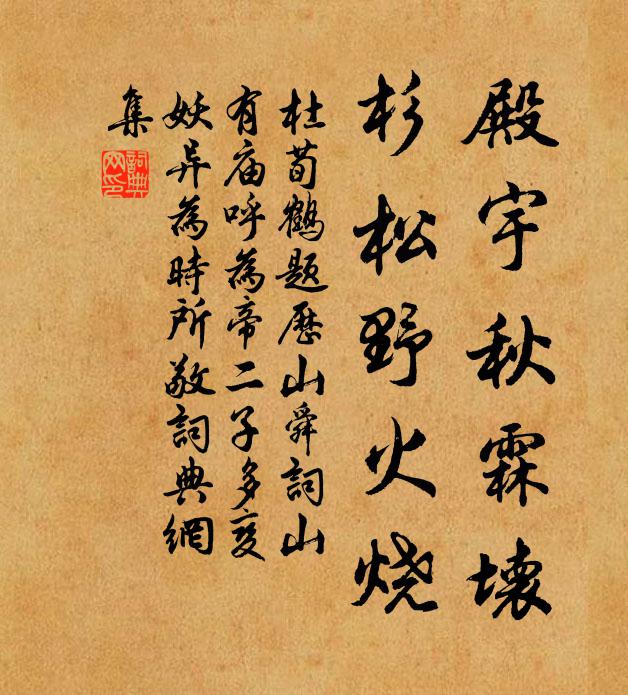 殿宇秋霖壞
杉松野火烧
杜荀鶴题歷山舜詞山
有庙呼為帝二子多变
妖异為時所敬詞典網
集
詞典
网印